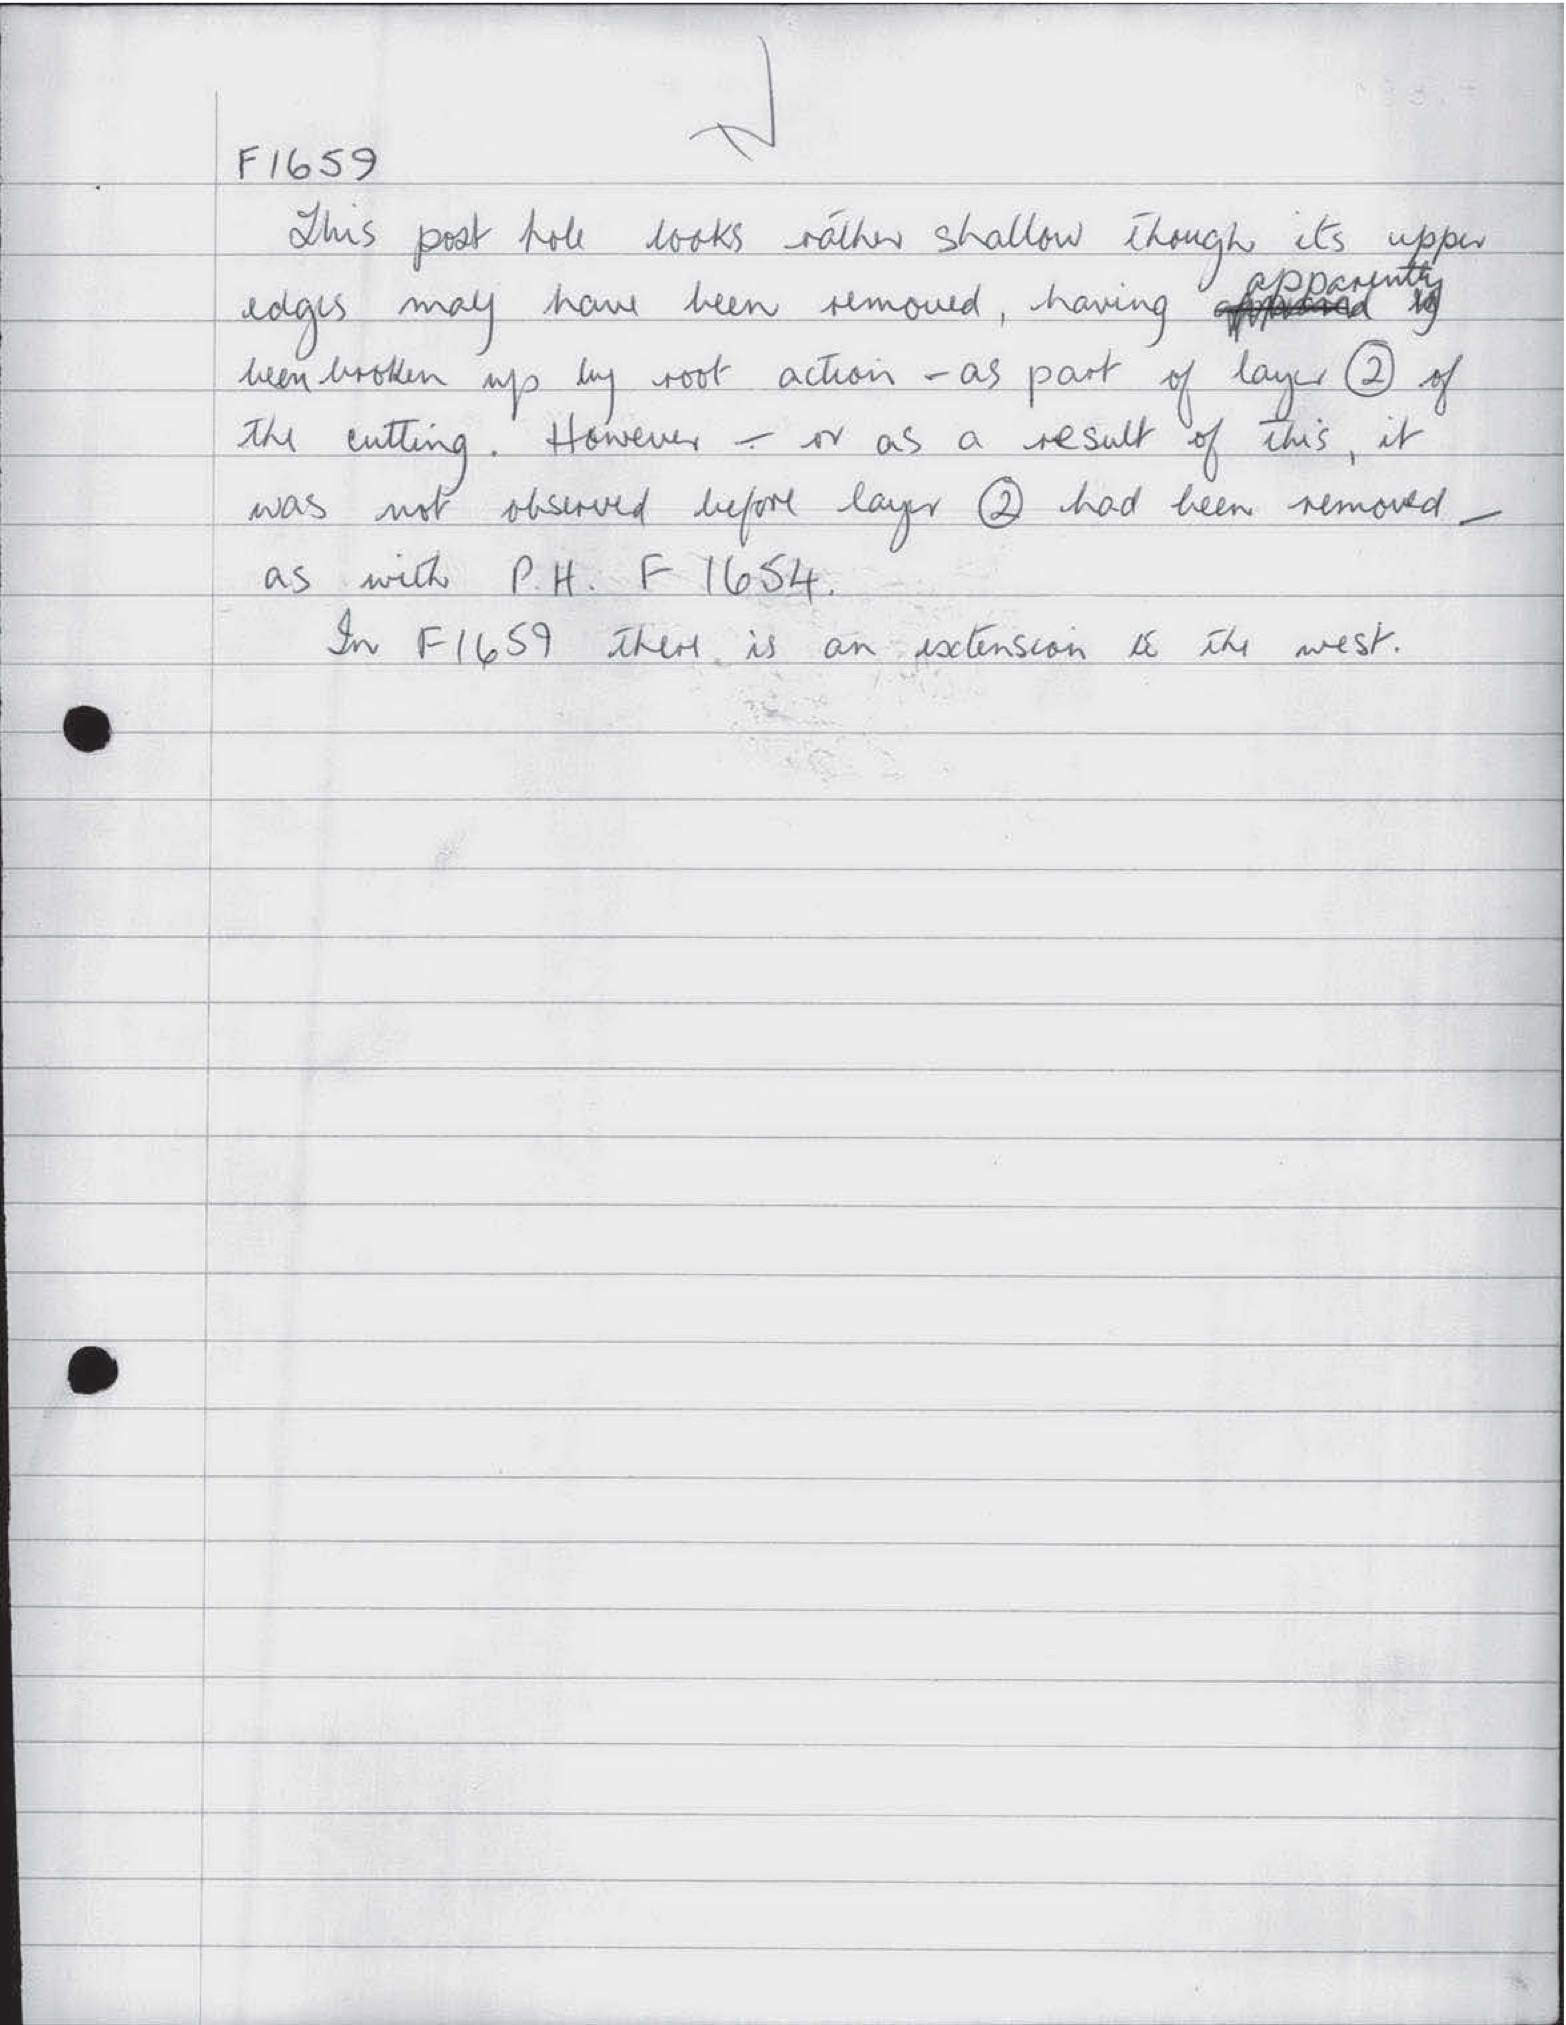 F1659
This post hole looks rather shallow though its upper
edges may have been removed, having apparently
been broken up by root action - as part of layer ② of
the cutting. However - or as a result of this, it
was not observed before layer ② had been removed -
as with P.H. F 1654.
In F1659 there is an extension to the west.